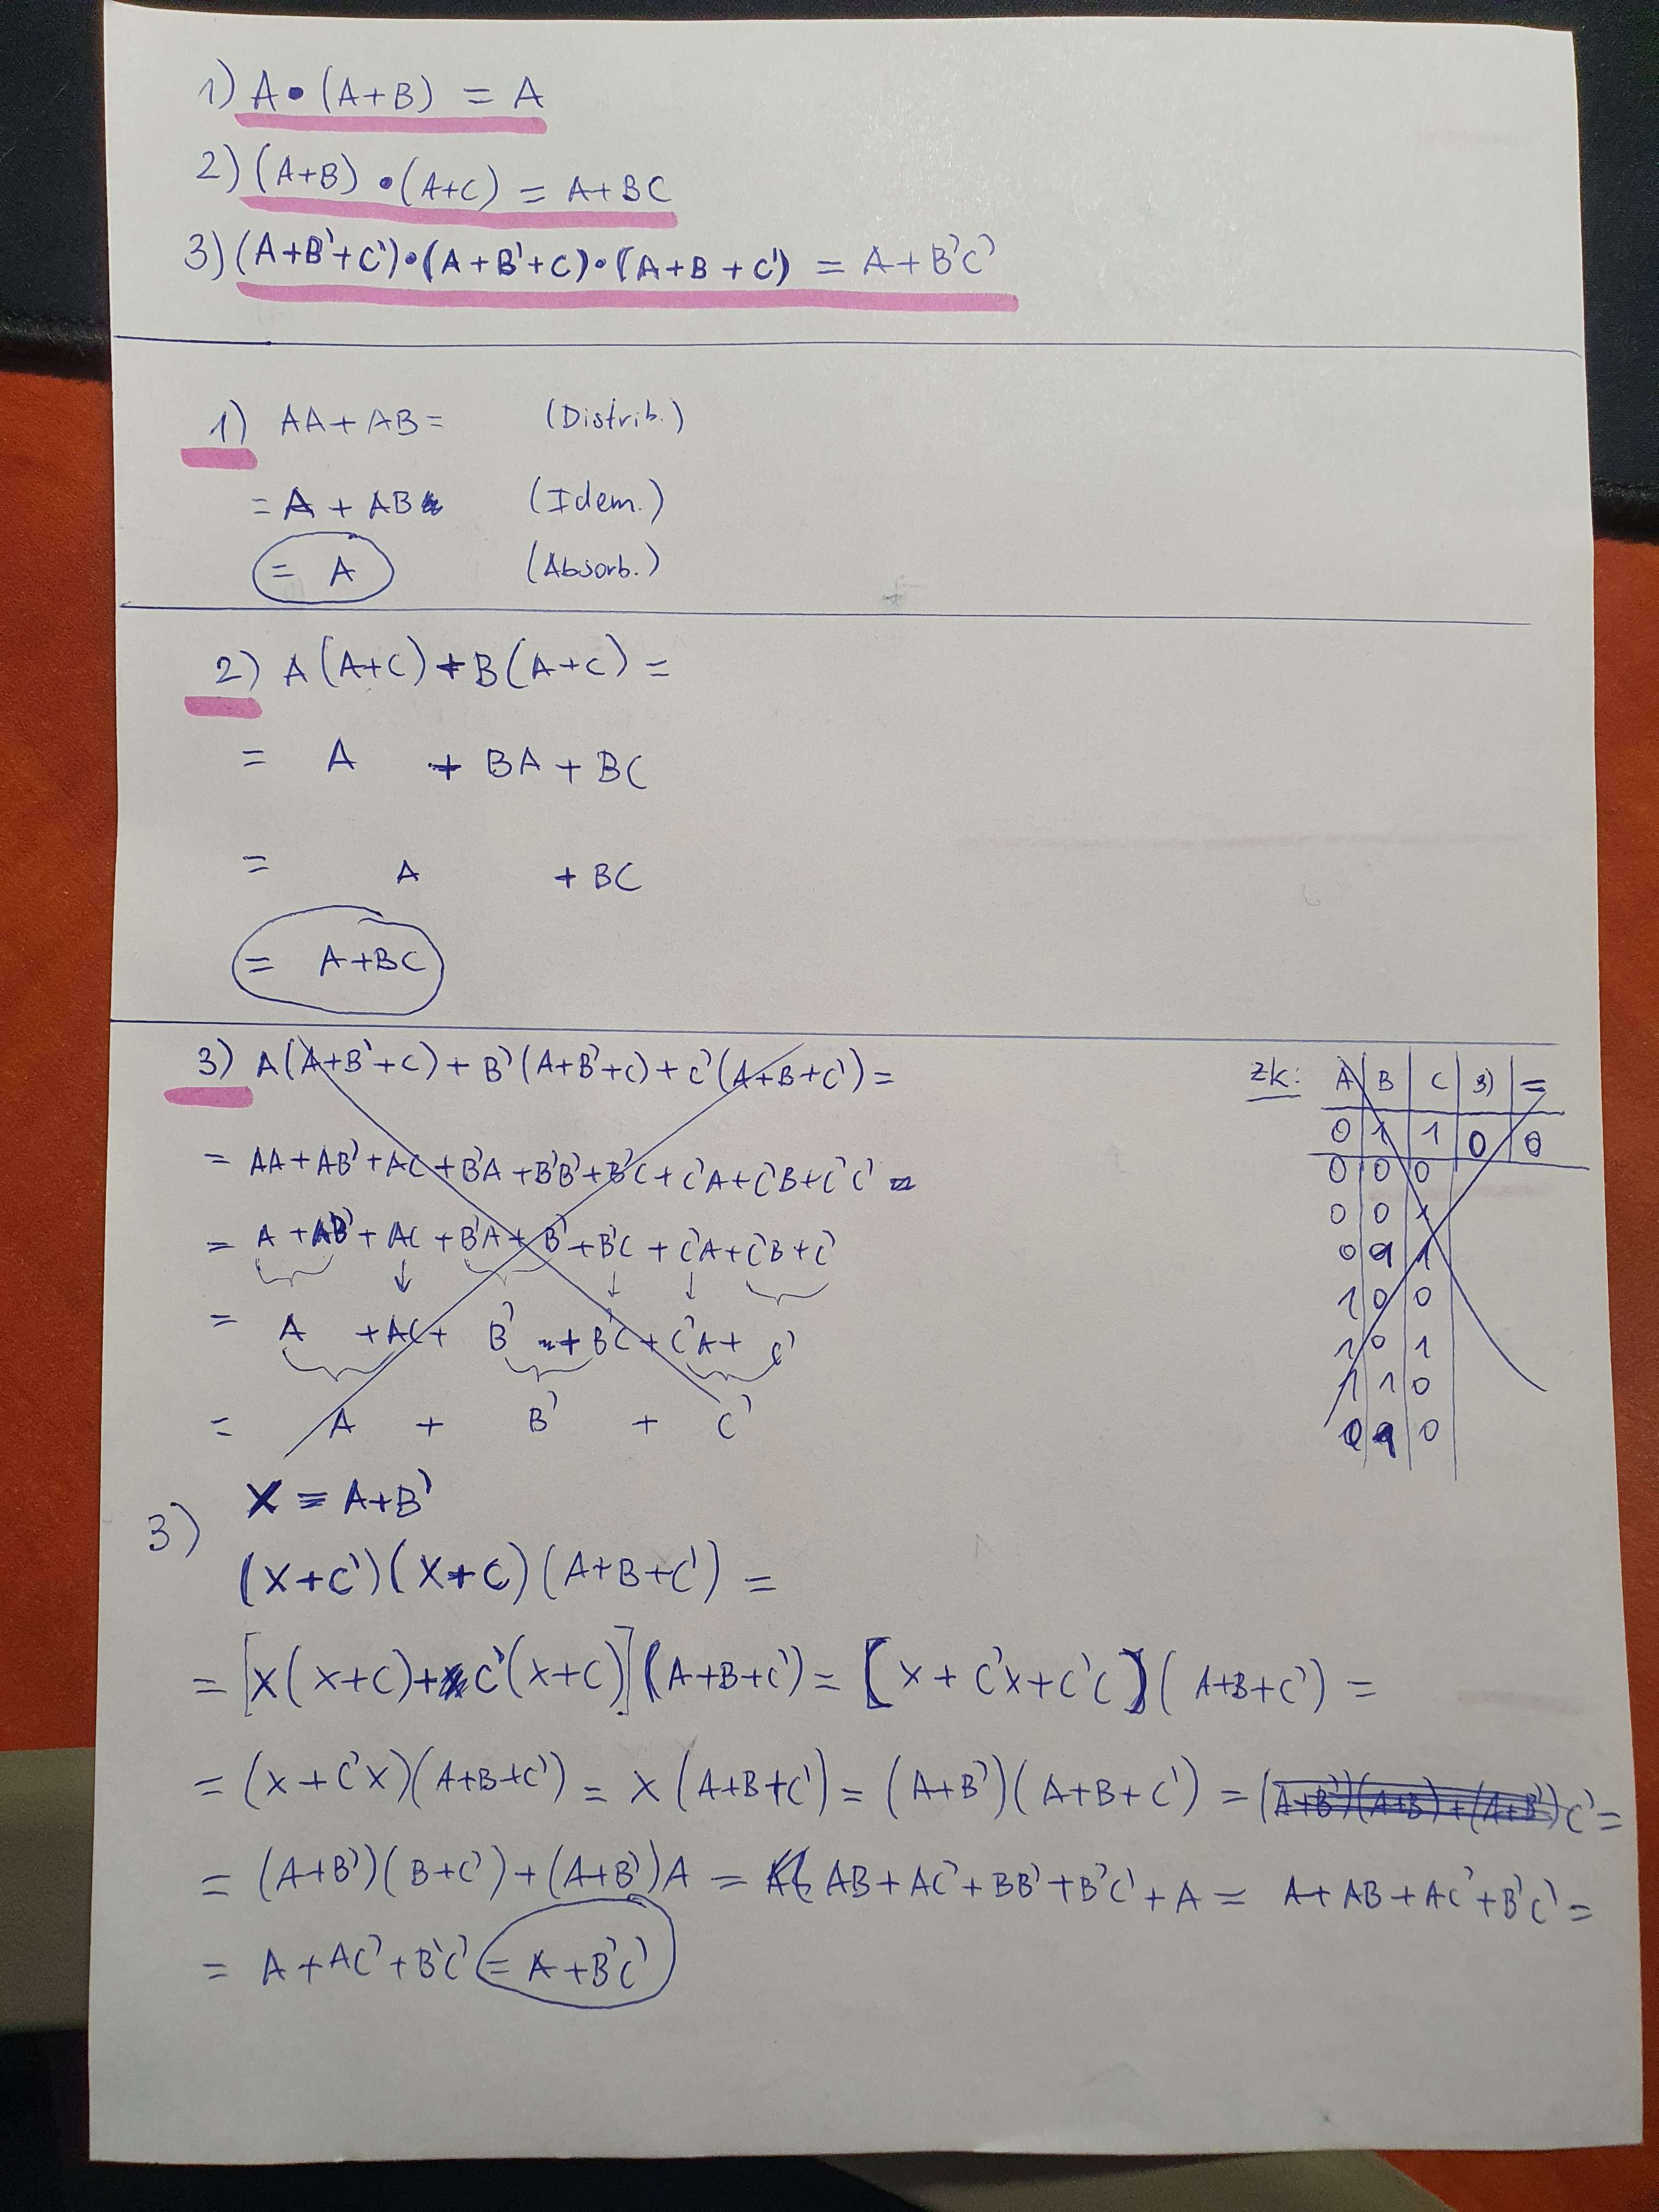 1) A • (A+B) = A
2) (A+B) • (A+C) = A+BC
3) (A+B'+C')•(A+B'+C)•(A+B+C') = A+B'C'
1) AA+AB= (Distrib.)
= A + AB (Idem.)
= A (Absorb.)
2) A(A+C)+B(A+C) =
= A + BA + BC
= A + BC
= A+BC
3) A(A+B'+C) + B'(A+B'+C) + C'(A+B+C') =
= AA+AB'+AC+B'A+B'B'+B'C+C'A+C'B+C'C' =
= A + AB' + AC + B'A + B' + B'C + C'A + C'B + C'
= A + AC + B' + B'C + C'A + C'
= A + B' + C'
zk: A B C 3) =
0 1 1 0 0
0 0 0
0 0 1
0 1 1
1 0 0
1 0 1
1 1 0
0 1 0
X = A+B'
3)
(X+C')(X+C)(A+B+C') =
= [X(X+C)+C'(X+C)](A+B+C') = [X + C'X+C'C](A+B+C') =
= (X+C'X)(A+B+C') = X(A+B+C') = (A+B')(A+B+C') = (A+B')(A+B)+(A+B')C' =
= (A+B')(B+C')+(A+B')A = AB+AC'+BB'+B'C'+A = A+AB+AC'+B'C' =
= A+AC'+B'C' = A+B'C'